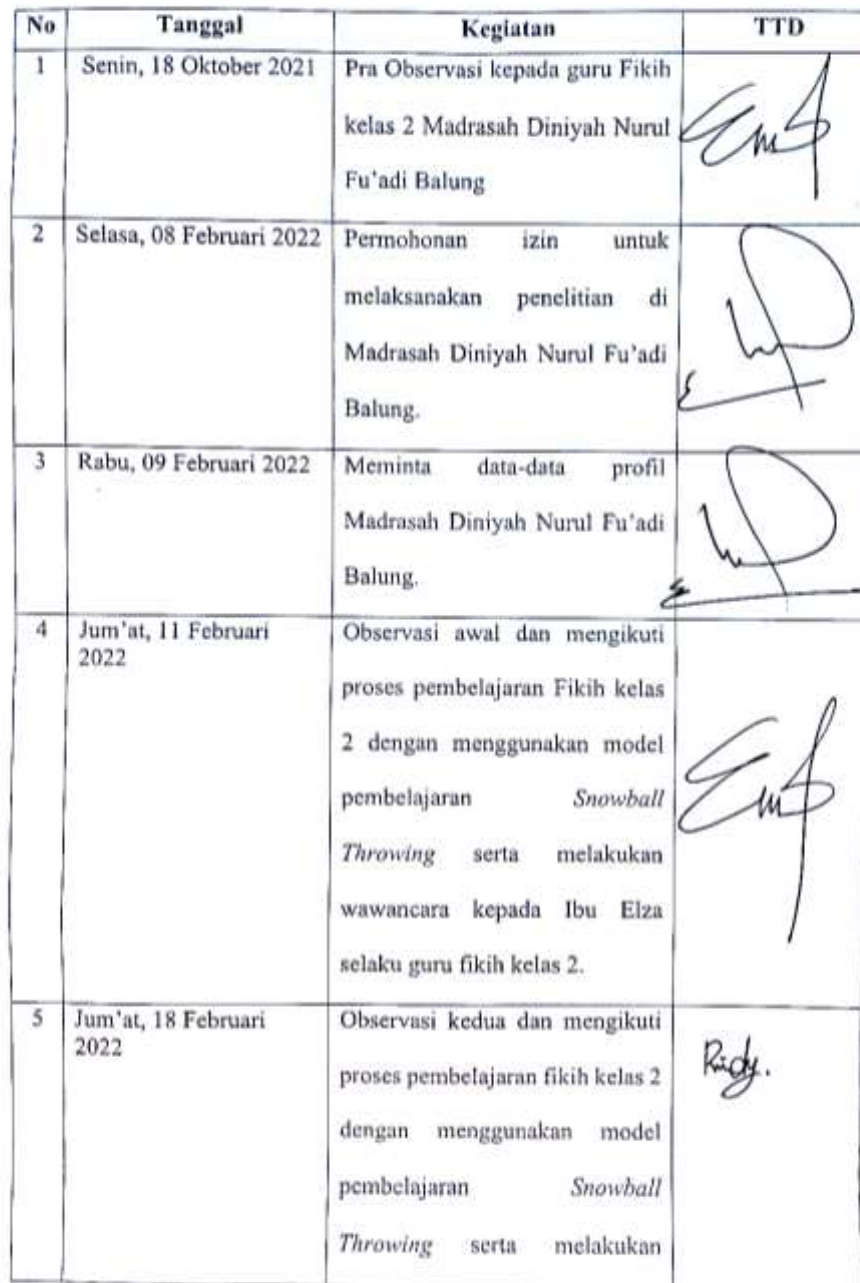 No Tanggal Kegiatan TTD
1 Senin, 18 Oktober 2021 Pra Observasi kepada guru Fikih
kelas 2 Madrasah Diniyah Nurul
Fu'adi Balung
2 Selasa, 08 Februari 2022 Permohonan izin untuk
melaksanakan penelitian di
Madrasah Diniyah Nurul Fu'adi
Balung.
3 Rabu, 09 Februari 2022 Meminta data-data profil
Madrasah Diniyah Nurul Fu'adi
Balung.
4 Jum'at, 11 Februari
2022
Observasi awal dan mengikuti
proses pembelajaran Fikih kelas
2 dengan menggunakan model
pembelajaran Snowball
Throwing serta melakukan
wawancara kepada Ibu Elza
selaku guru fikih kelas 2.
5 Jum'at, 18 Februari
2022
Observasi kedua dan mengikuti
proses pembelajaran fikih kelas 2
dengan menggunakan model
pembelajaran Snowball
Throwing serta melakukan